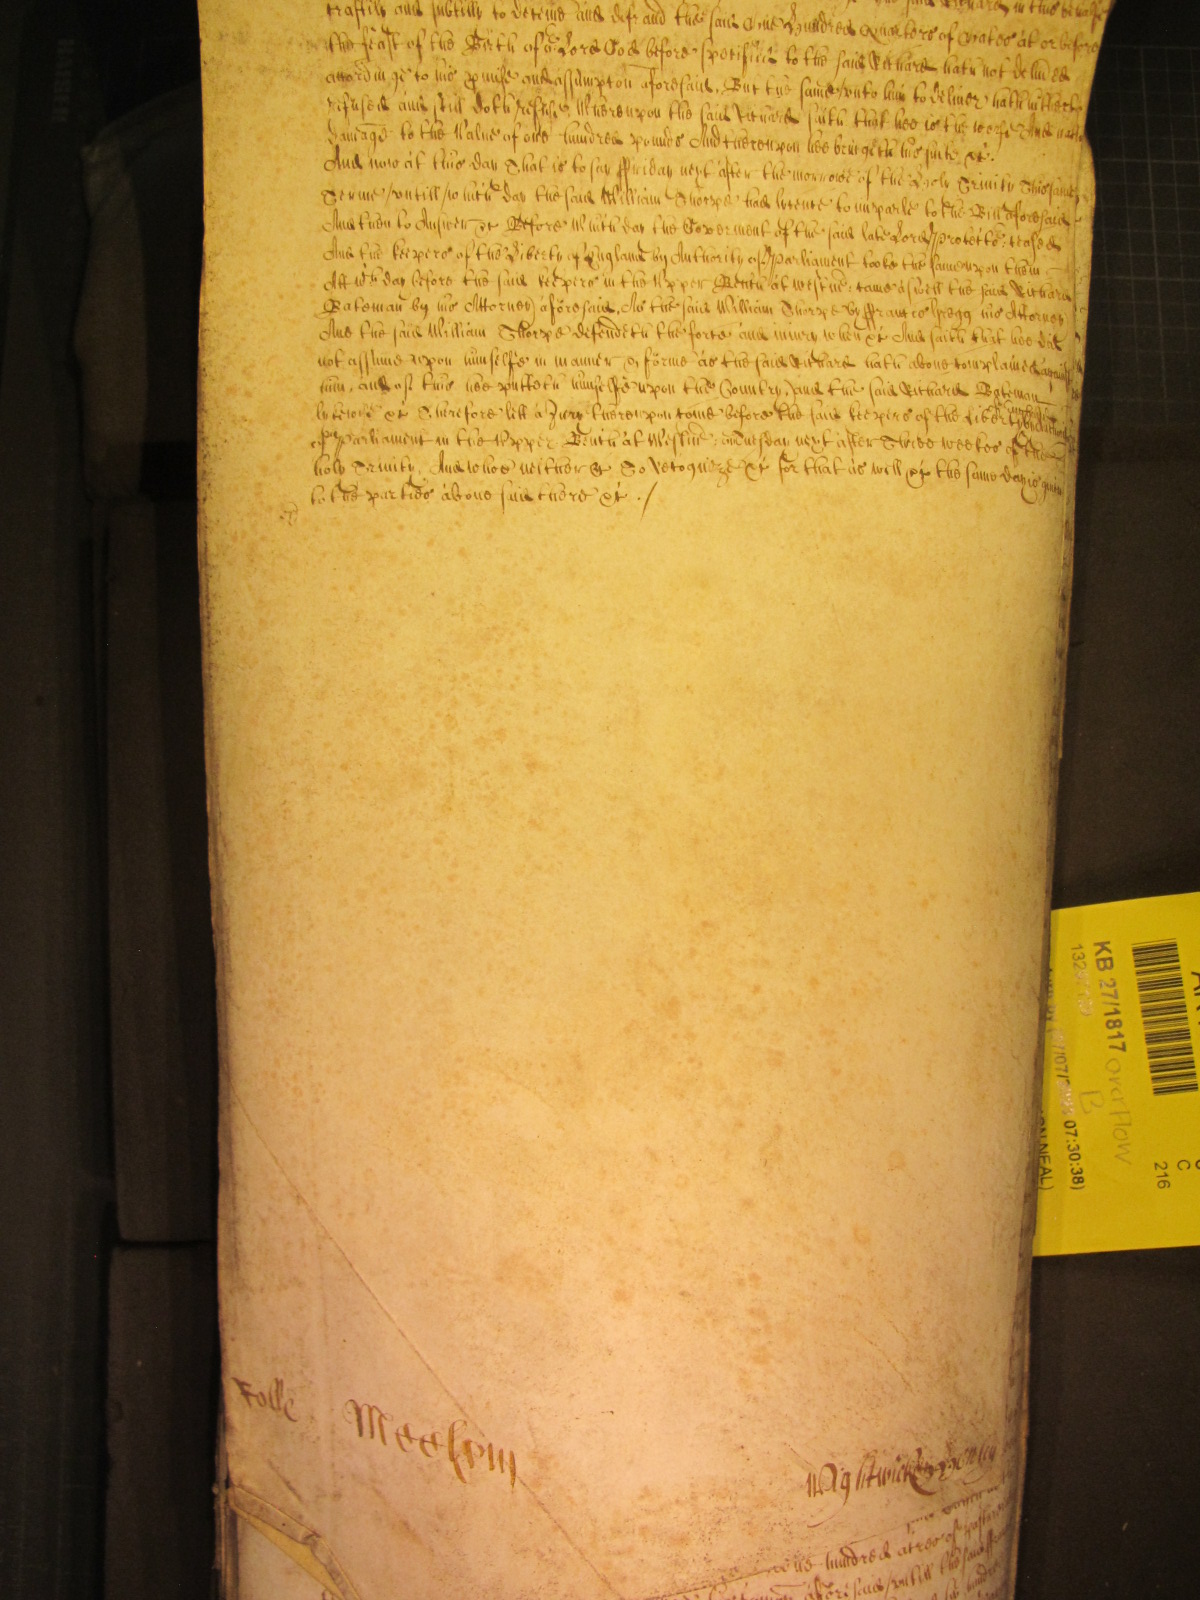 craftily and subtilly to deceive and defraud the said One Hundred Quarters of Oates at or before
the feast of the Birth of or Lord God before specified to the said Richard hath not deliv̄ed
according to his p̱mise and assumpc̄on aforesaid, But the same unto him to deliver hath
refused and still doth refuse, Whereupon the said Richard saith that hee is the worse And
damage to the Value of one hundred pounds And thereupon hee bringeth his suite &c.
And now at this day That is to say ffriday next after the morrowe of the Holy Trinity This same
Terme untill which day the said William Thorpe had licence to imparle to the Bill aforesaid
And then to Answer &c Before which day the Goverment of the said late Lord Protector ceased
And the keepers of the Liberty of England by Authority of Parliament tooke the same upon them
Att wch day before the said keepers in the Upper Bench at Westmr came aswell the said Richard
Bateman by his Attorney aforesaid, As the said William Thorpe by ffrancis Gregg his Attorney
And the said William Thorpe defendeth the force and iniury when &c And saith that hee did
not assume upon himselfe in manner & forme as the said Richard hath above complained
him, and of this hee putteth himselfe upon the Country, and the said Richard Bateman
likewise &c Therefore lett a Jury thereupon come before the said keepers of the Liberty
of Parliament in the Upper Bench at Westmr on next after Three weekes of the
holy Trinity, And whoe neither &c To recognize &c for that as well &c the same day is given
to the parties above said there &c ./
Rolle
KB 27/1817
overflow
B
07:30:38)
NEAL)
C
216
one hundred acres of pasture
aforesaid untill the said